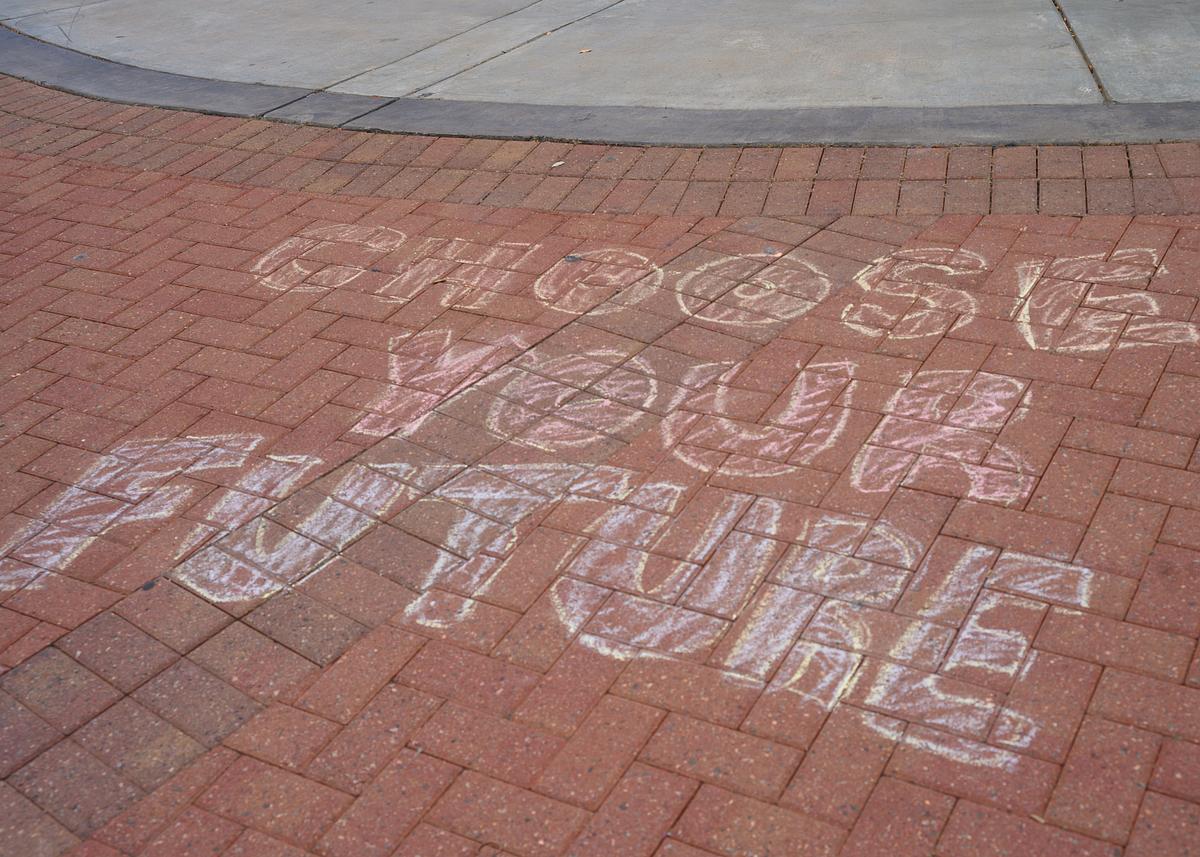 CHOOSE
YOUR
FUTURE